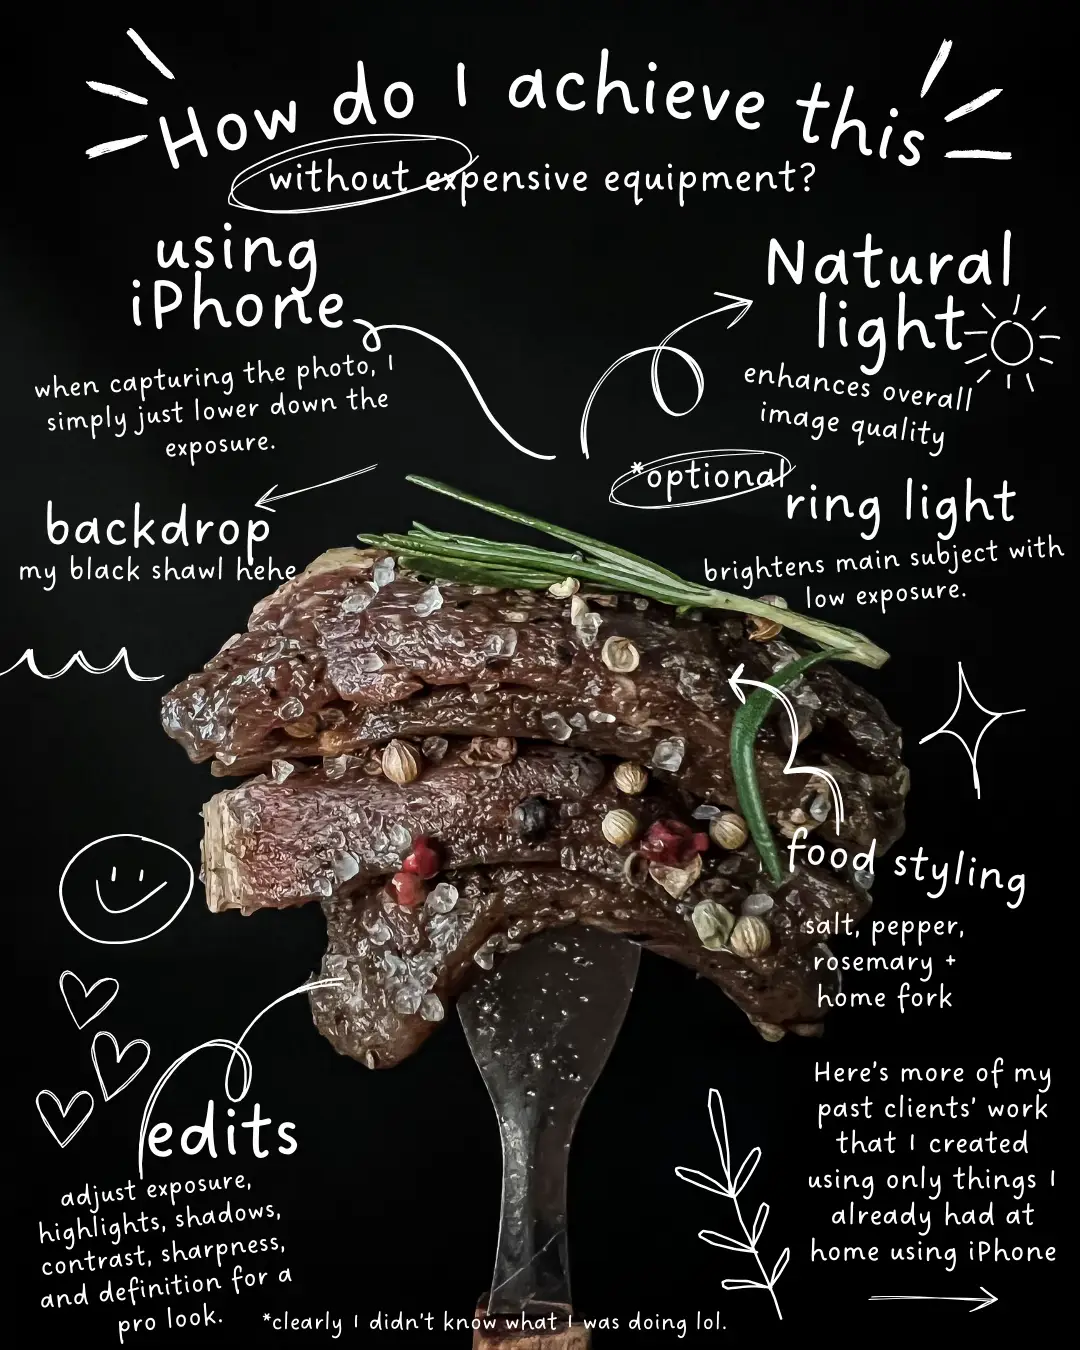 How do I achieve this
without expensive equipment?
using
iPhone
when capturing the photo, I
simply just lower down the
exposure.
Natural
light
enhances overall
image quality
*optional
ring light
brightens main subject with
low exposure.
backdrop
my black shawl hehe
food styling
salt, pepper,
rosemary +
home fork
edits
adjust exposure,
highlights, shadows,
contrast, sharpness,
and definition for a
pro look.
Here's more of my
past clients' work
that I created
using only things I
already had at
home using iPhone
*clearly I didn't know what I was doing lol.